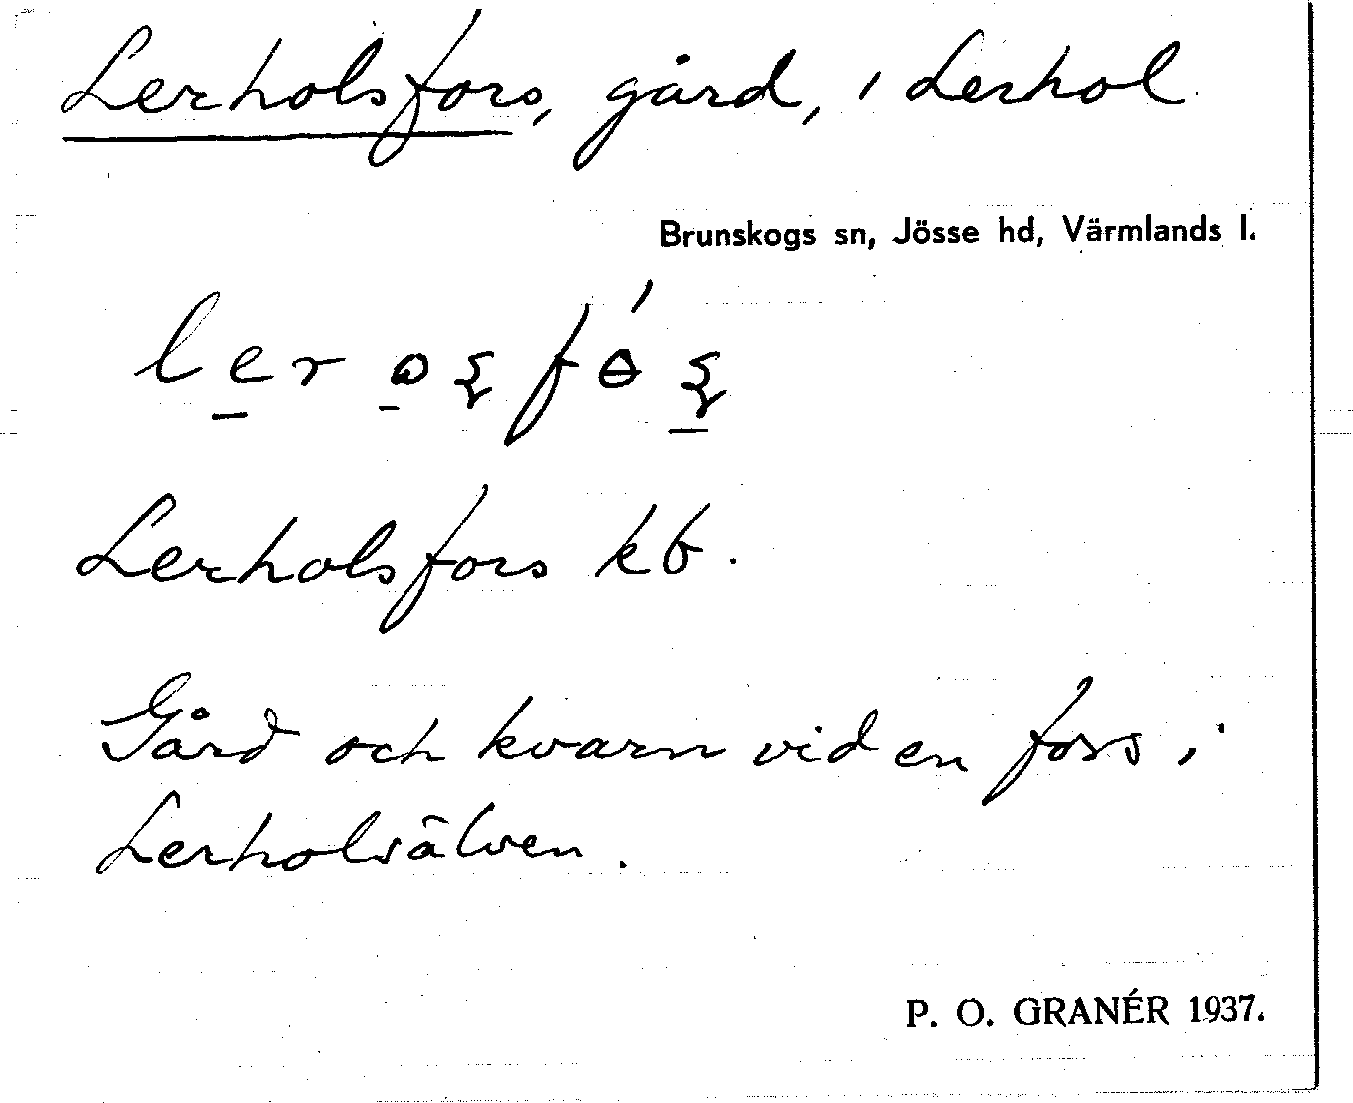 Lerholsfors, gård, i Lerhol
Brunskogs sn, Jösse hd, Värmlands l.
Lerholsfors kb.
Gård och kvarn vid en fors i
Lerholsälven.
P. O. GRANÉR 1937.